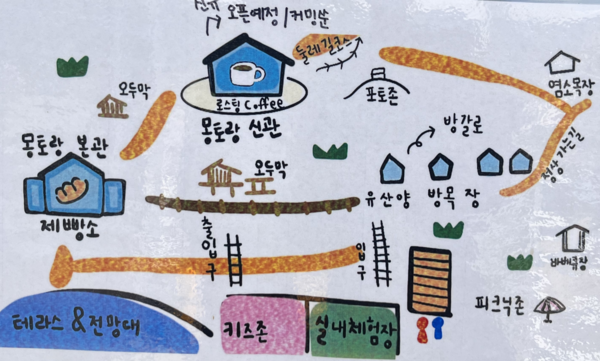 오픈예정/커밍쑨
둘레길코스
오두막
로스팅 Coffee
포토존
염소목장
몽토랑 신관
방갈로
몽토랑 본관
오두막
정상 가는길
유산양
방목장
제빵소
출입구
입구
바베큐장
피크닉존
테라스 & 전망대
키즈존
실내체험장